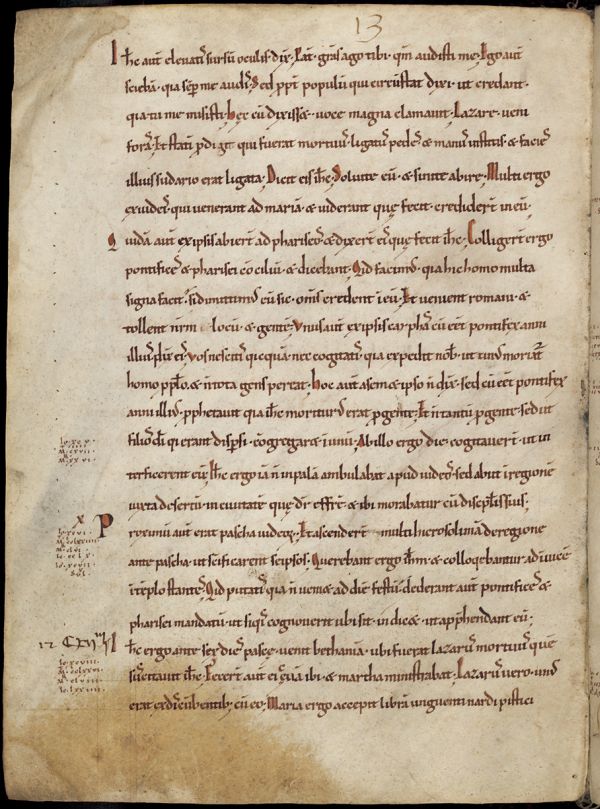 13
Ihc aut̄ eleuatis sursū oculis dix̄. Pat̄ grās ago tibi. qm̄ audisti me. Ego aut̄
sciebā. quia sēp me audis. Sed ppt̄ populū qui circūstat dixi. ut credant.
quia tu me misisti. Hęc cū dixiss&. uoce magna clamauit. Lazare. ueni
foras. Et statī pdiit qui fuerat mortuus. ligatus pedes & manus institis. & facies
illius sudario erat ligata. Dicit eis ihc. Soluite eū. & sinite abire. Multi ergo
ex iudeis. qui uenerant ad mariā. & uiderant quę fecit. credidert̄ in eū.
Quidā aut̄ ex ipsis abiert̄ ad phariseos. & dixert̄ eis quę fecit ihc. Colligert̄ ergo
pontifices & pharisei cōciliū. & dicebant. Qd facimus. quia hic homo multa
signa facit. si dimittimus eū sic. omīs credent ī eū. Et uenient romani. &
tollent nr̄m locū. & gentē. Vnus aut̄ ex ipsis cayphas cū eēt pontifex anni
illius. dix̄ eis. Vos nescitis quicquā. nec cogitatis. quia expedit nob̄. ut unus moriat̄
homo p pplo. & n̄ tota gens pereat. Hoc aut̄ a sem& ipso n̄ dix̄. sed cū eēt pontifex
anni illius. pphetauit quia ihc moriturus erat p gente. Et n̄ tantū p gente. sed ut
filios di qui erant disp̄si. cōgregar& ī unū. Ab illo ergo die. cogitauert̄. ut in
terficerent eū. Ihc ergo iā n̄ in palā ambulabat apud iudeos. sed abiit ī regionē
iuxta desertū. in ciuitatē quę dr̄ effrē. & ibi morabatur cū discipulis suis.
Proximū aut̄ erat pascha iudeoꝝ. Et ascendert̄ multi hierosolimā de regione
ante pascha. ut scificarent seipsos. Querebant ergo ihm. & colloqebantur ad inuicē
ī tēplo stantes. Qd putatis. quia n̄ uenit ad diē festū. dederant aut̄ pontifices &
pharisei mandatū. ut siqis cognouerit ubi sit. indic&. ut apphendant eū.
Ihc ergo ante sex dies pasce. uenit bethaniā. ubi fuerat lazarus mortuus quē
suscitauit ihc. Fecert̄ aut̄ ei cenā ibi. & martha ministrabat. Lazarus uero. unus
erat ex discūbentibus cū eo. Maria ergo accepit librā unguenti nardi pistici